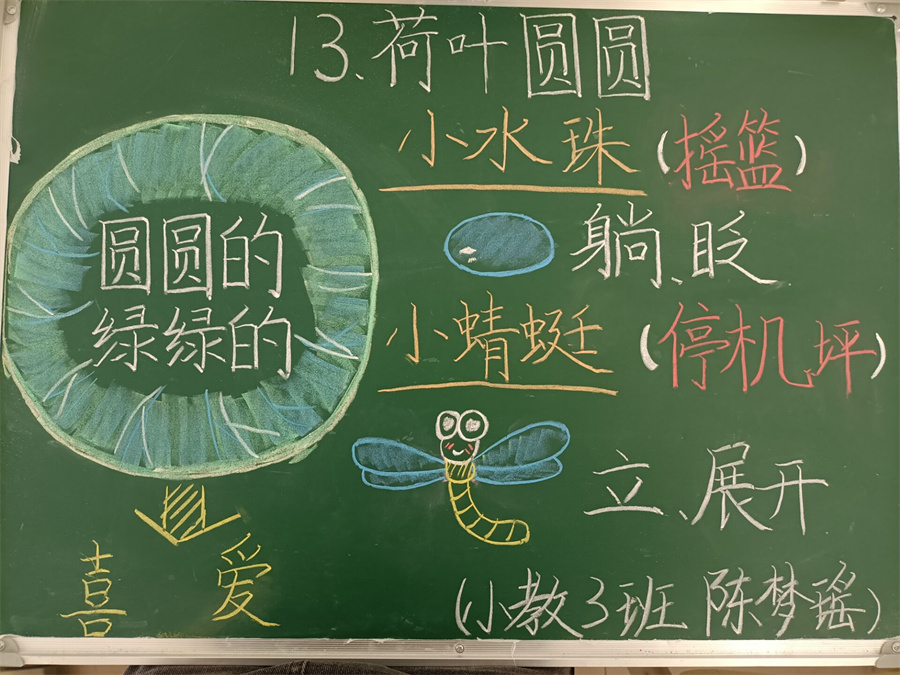 13、荷叶圆圆
圆圆的
绿绿的
喜爱
小水珠(摇篮)
躺、眨
小蜻蜓(停机坪)
立、展开
(小教3班 陈梦瑶)